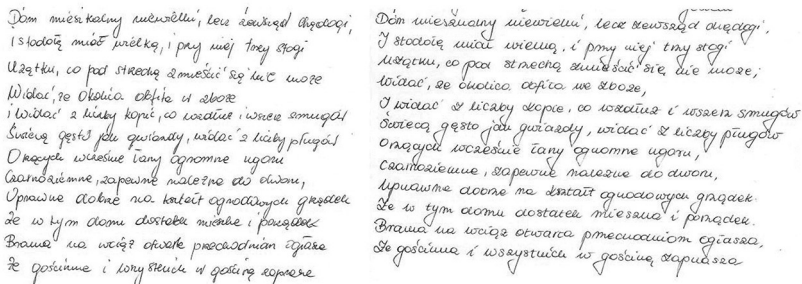 Dóm mieszkalny niewielki, lecz zewsząd chędogi,
I stodołę miał wielką, i przy niej trzy stogi
Użątku, co pod strzechą zmieścić się nie może
Widać, że okolica obfita w zboże
i widać z liczby kopic, co wzdłuż i wszerz smugów
Świecą gęsto jak gwiazdy, widać z liczby pługów
Orzących wcześnie łany ogromne ugoru
Czarnoziemne, zapewne należne do dworu,
Uprawne dobrze na kształt ogrodowych grządek
Że w tym domu dostatek mieszka i porządek
Brama na wciąż otwarta przechodniom ogłasza
Że gościnna i wszystkich w gościnę zaprasza
Dóm mieszkalny niewielki, lecz zewsząd chędogi,
I stodołę miał wielką, i przy niej trzy stogi
Użątku, co pod strzechą zmieścić się nie może;
Widać, że okolica obfita we zboże,
I widać z liczby kopic, co wzdłuż i wszerz smugów
Świecą gęsto jak gwiazdy, widać z liczby pługów
Orzących wcześnie łany ogromne ugoru,
Czarnoziemne, zapewne należne do dworu,
Uprawne dobrze na kształt ogrodowych grządek.
Że w tym domu dostatek mieszka i porządek.
Brama na wciąż otwarta przechodniom ogłasza,
Że gościnna i wszystkich w gościnę zaprasza